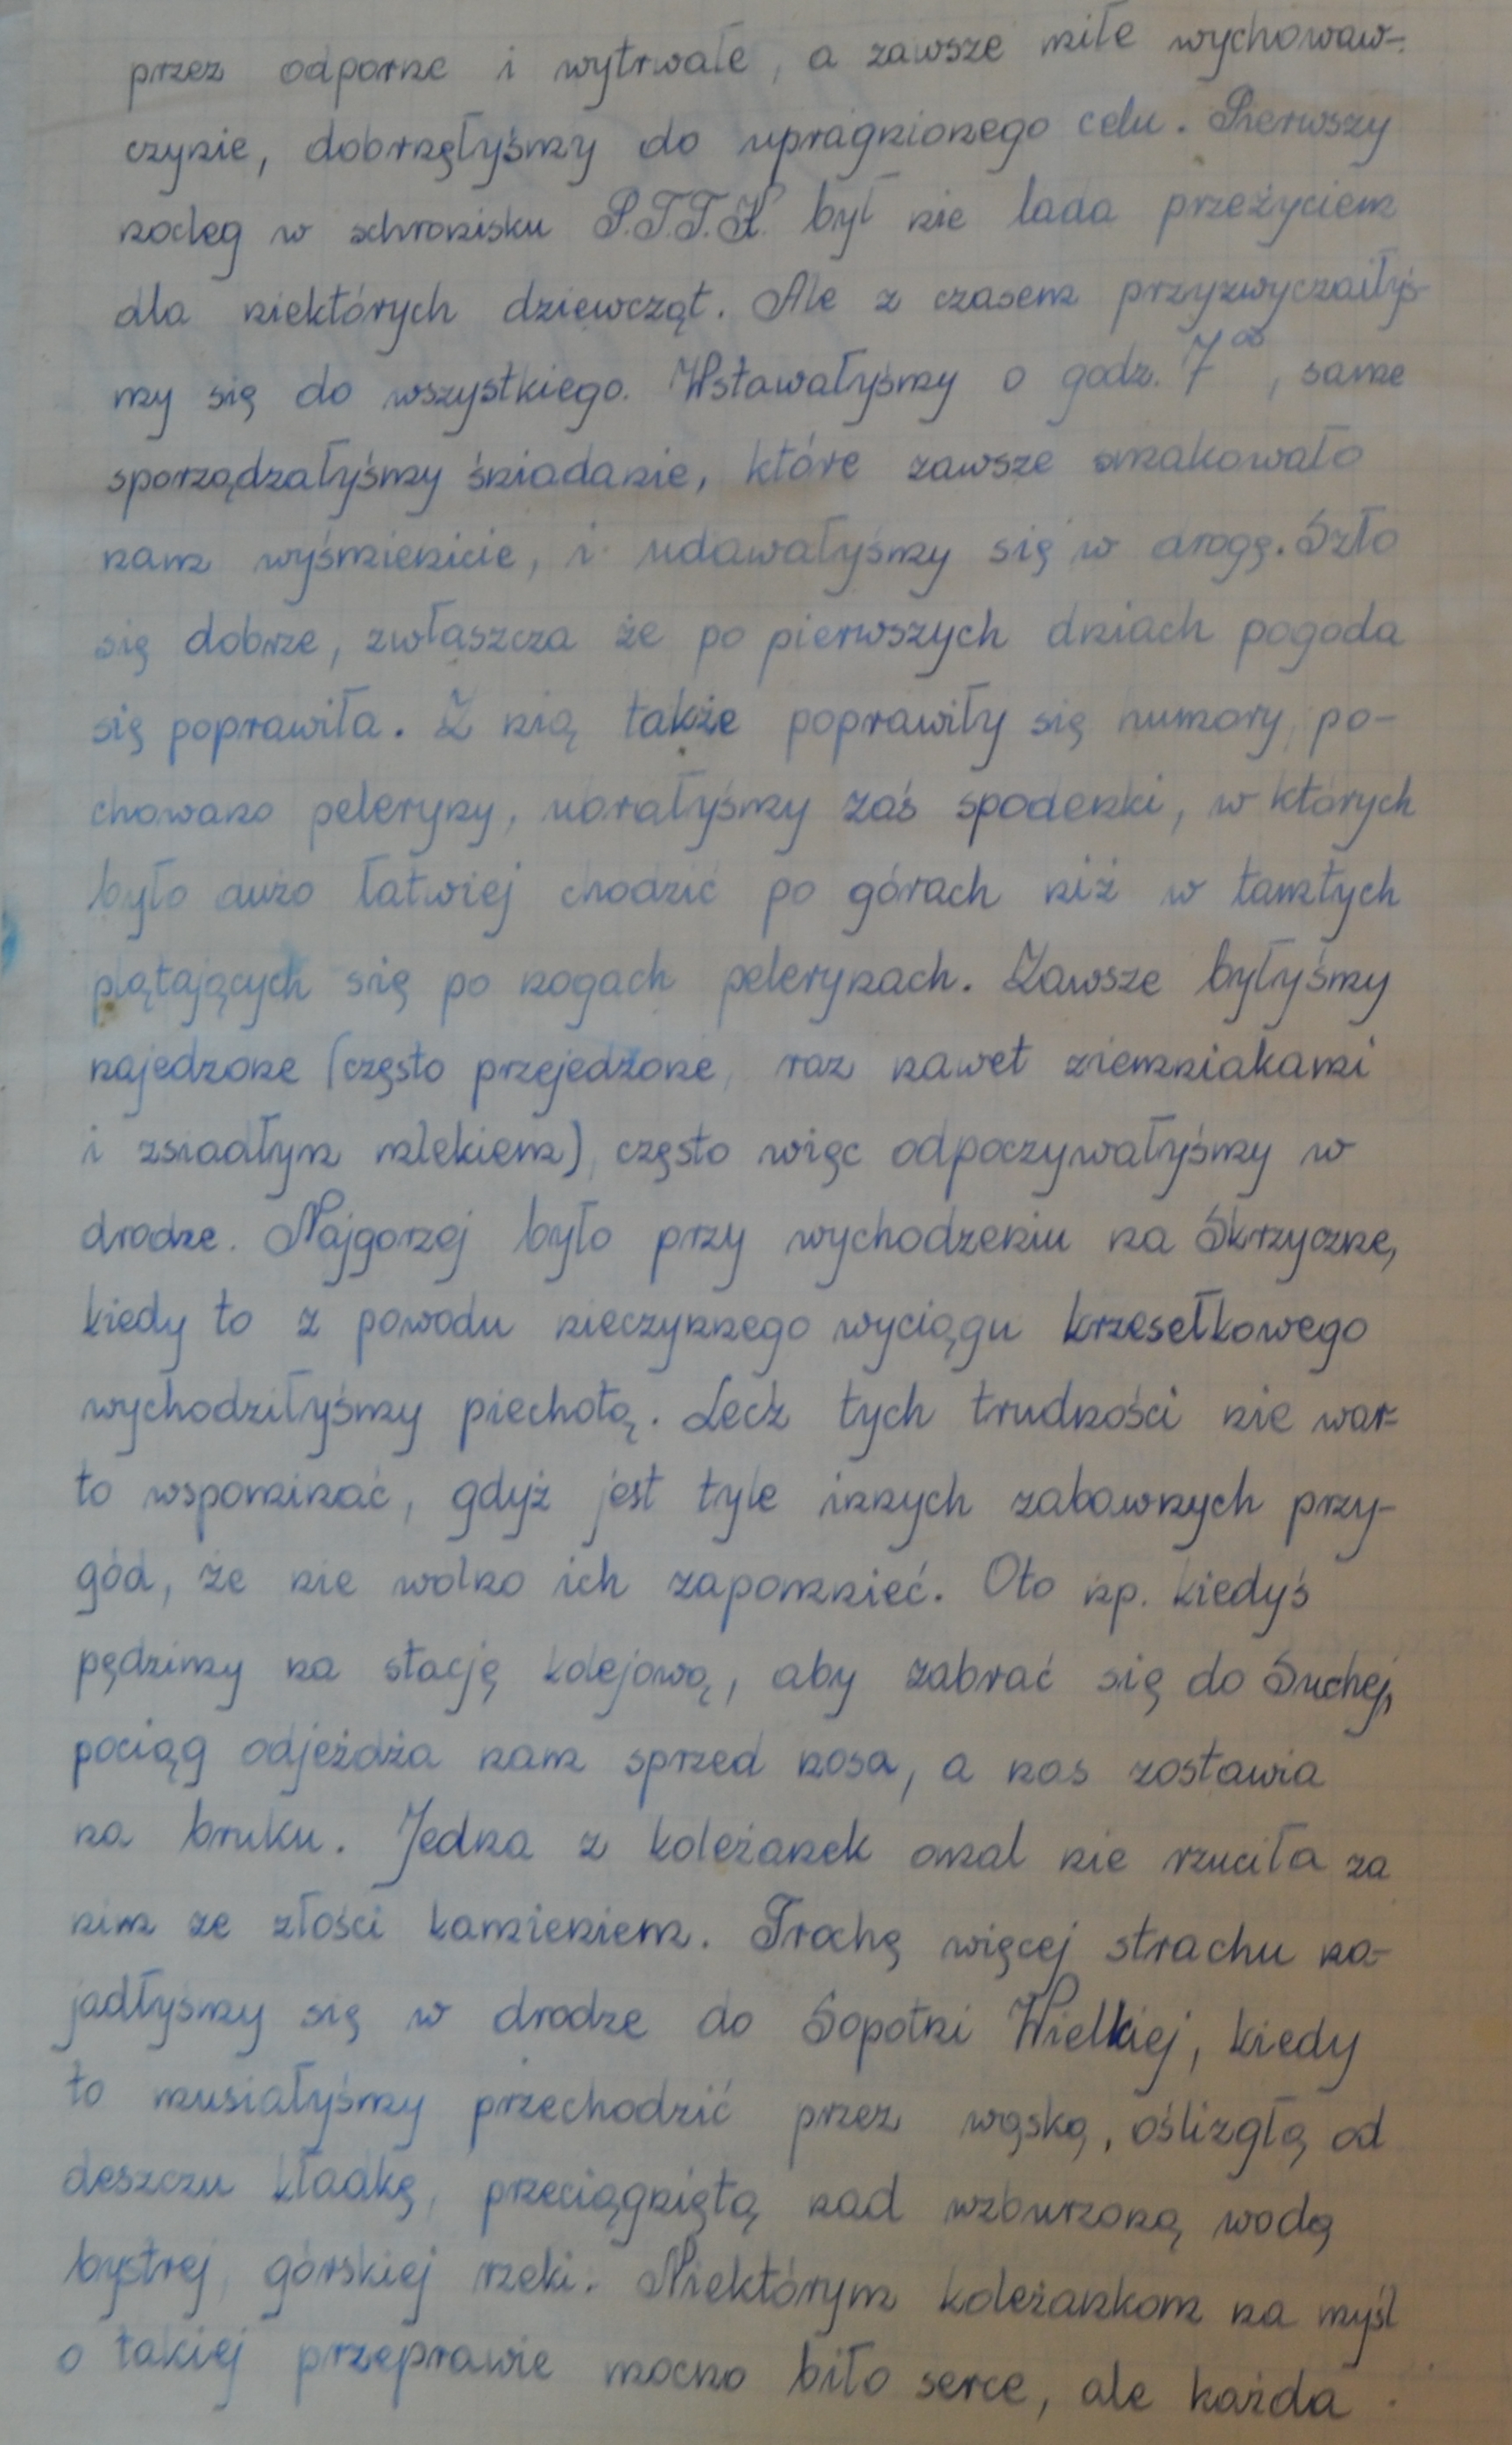 przez odporne i wytrwałe, a zawsze miłe wychowaw-
czynie, dobrnęłyśmy do upragnionego celu. Pierwszy
nocleg w schronisku P.T.T.K. był nie lada przeżyciem
dla niektórych dziewcząt. Ale z czasem przyzwyczaiłyś-
my się do wszystkiego. Wstawałyśmy o godz. 7⁰⁰, same
sporządzałyśmy śniadanie, które zawsze smakowało
nam wyśmienicie, i udawałyśmy się w drogę. Szło
się dobrze, zwłaszcza że po pierwszych dniach pogoda
się poprawiła. Z nią także poprawiły się humory, po-
chowano peleryny, ubrałyśmy zaś spodenki, w których
było dużo łatwiej chodzić po górach niż w tamtych
plątających się po nogach pelerynach. Zawsze byłyśmy
najedzone (często przejedzone, raz nawet ziemniakami
i zsiadłym mlekiem), często więc odpoczywałyśmy w
drodze. Najgorzej było przy wychodzeniu na Skrzyczne,
kiedy to z powodu nieczynnego wyciągu krzesełkowego
wychodziłyśmy piechotą. Lecz tych trudności nie war-
to wspominać, gdyż jest tyle innych zabawnych przy-
gód, że nie wolno ich zapomnieć. Oto np. kiedyś
pędzimy na stację kolejową, aby zabrać się do Suchej,
pociąg odjeżdża nam sprzed nosa, a nas zostawia
na bruku. Jedna z koleżanek omal nie rzuciła za
nim ze złości kamieniem. Trochę więcej strachu na-
jadłyśmy się w drodze do Sopotni Wielkiej, kiedy
to musiałyśmy przechodzić przez wąską, oślizgłą od
deszczu kładkę, przeciągniętą nad wzburzoną wodą
bystrej, górskiej rzeki. Niektórym koleżankom na myśl
o takiej przeprawie mocno biło serce, ale każda